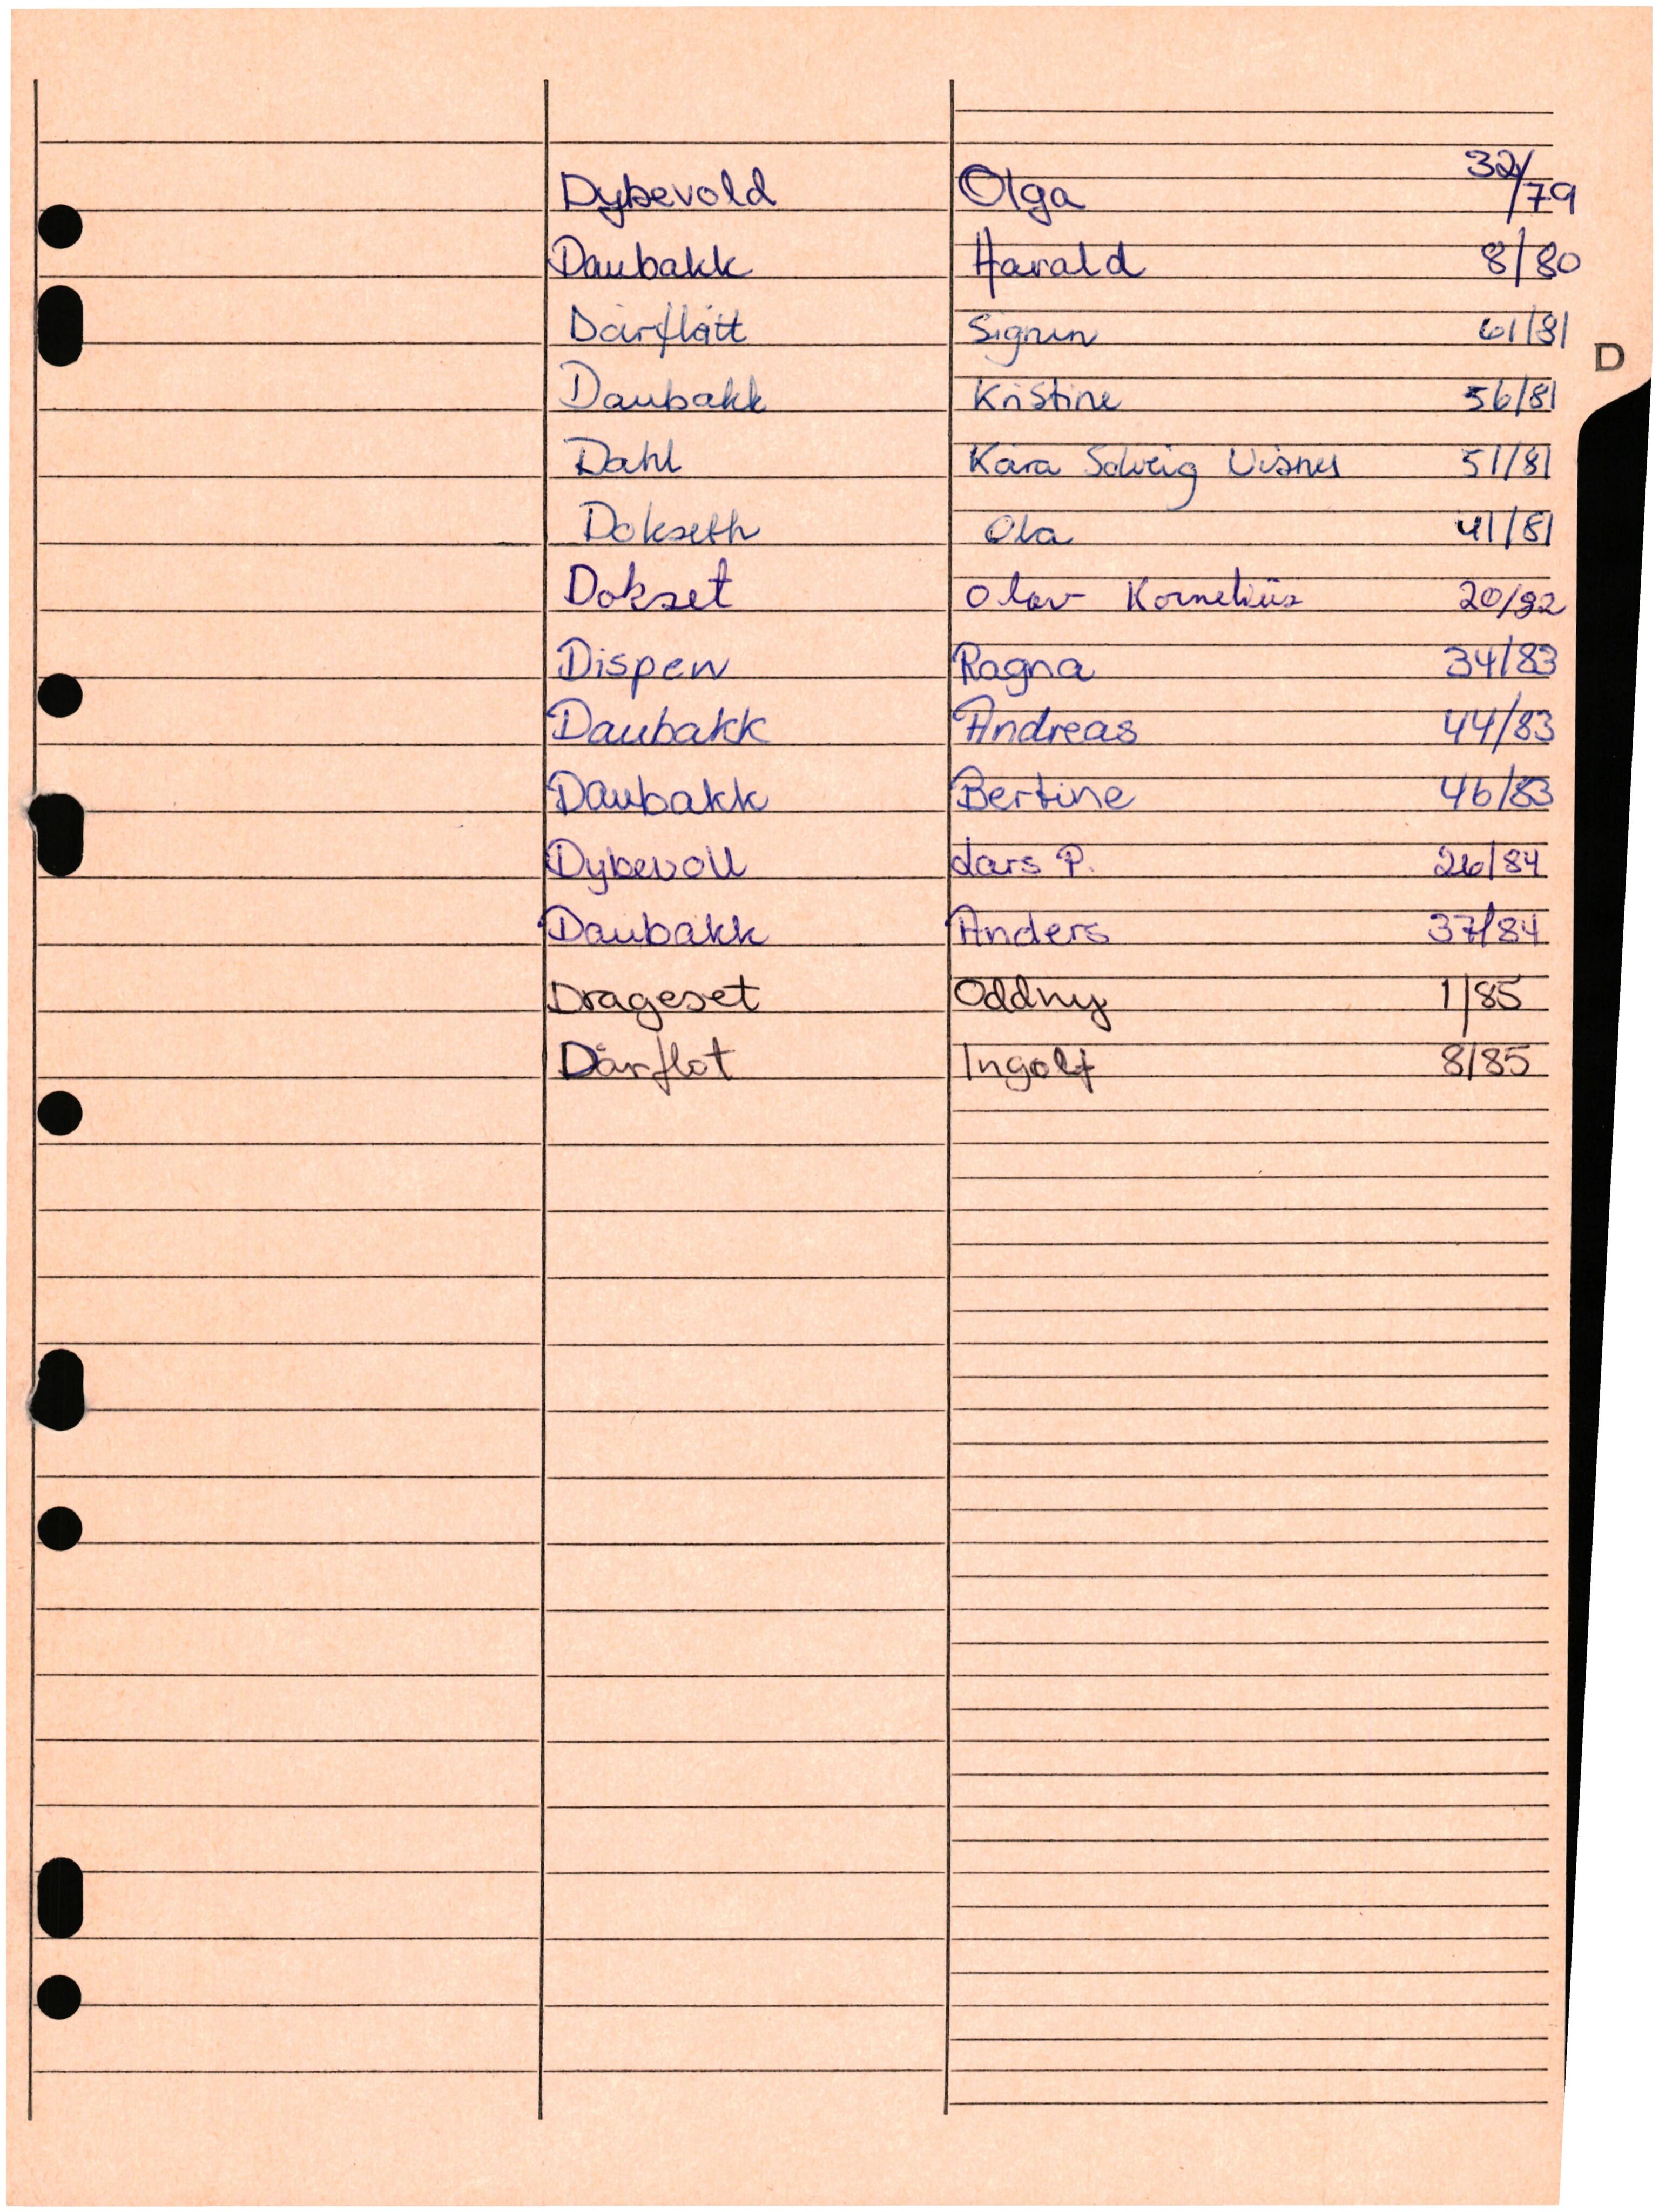 Dybevold Olga 32/79
Daubakk Harald 8/80
Dårflått Sigrun 61/81
D
Daubakk Kristine 56/81
Dahl Kåra Solveig Visnes 51/81
Dokseth Ola 41/81
Dokset Olav Kornelius 20/82
Dispen Ragna 34/83
Daubakk Andreas 44/83
Daubakk Bertine 46/83
Dybevoll Lars P. 26/84
Daubakk Anders 37/84
Drageset Oddny 1/85
Dårflot Ingolf 8/85